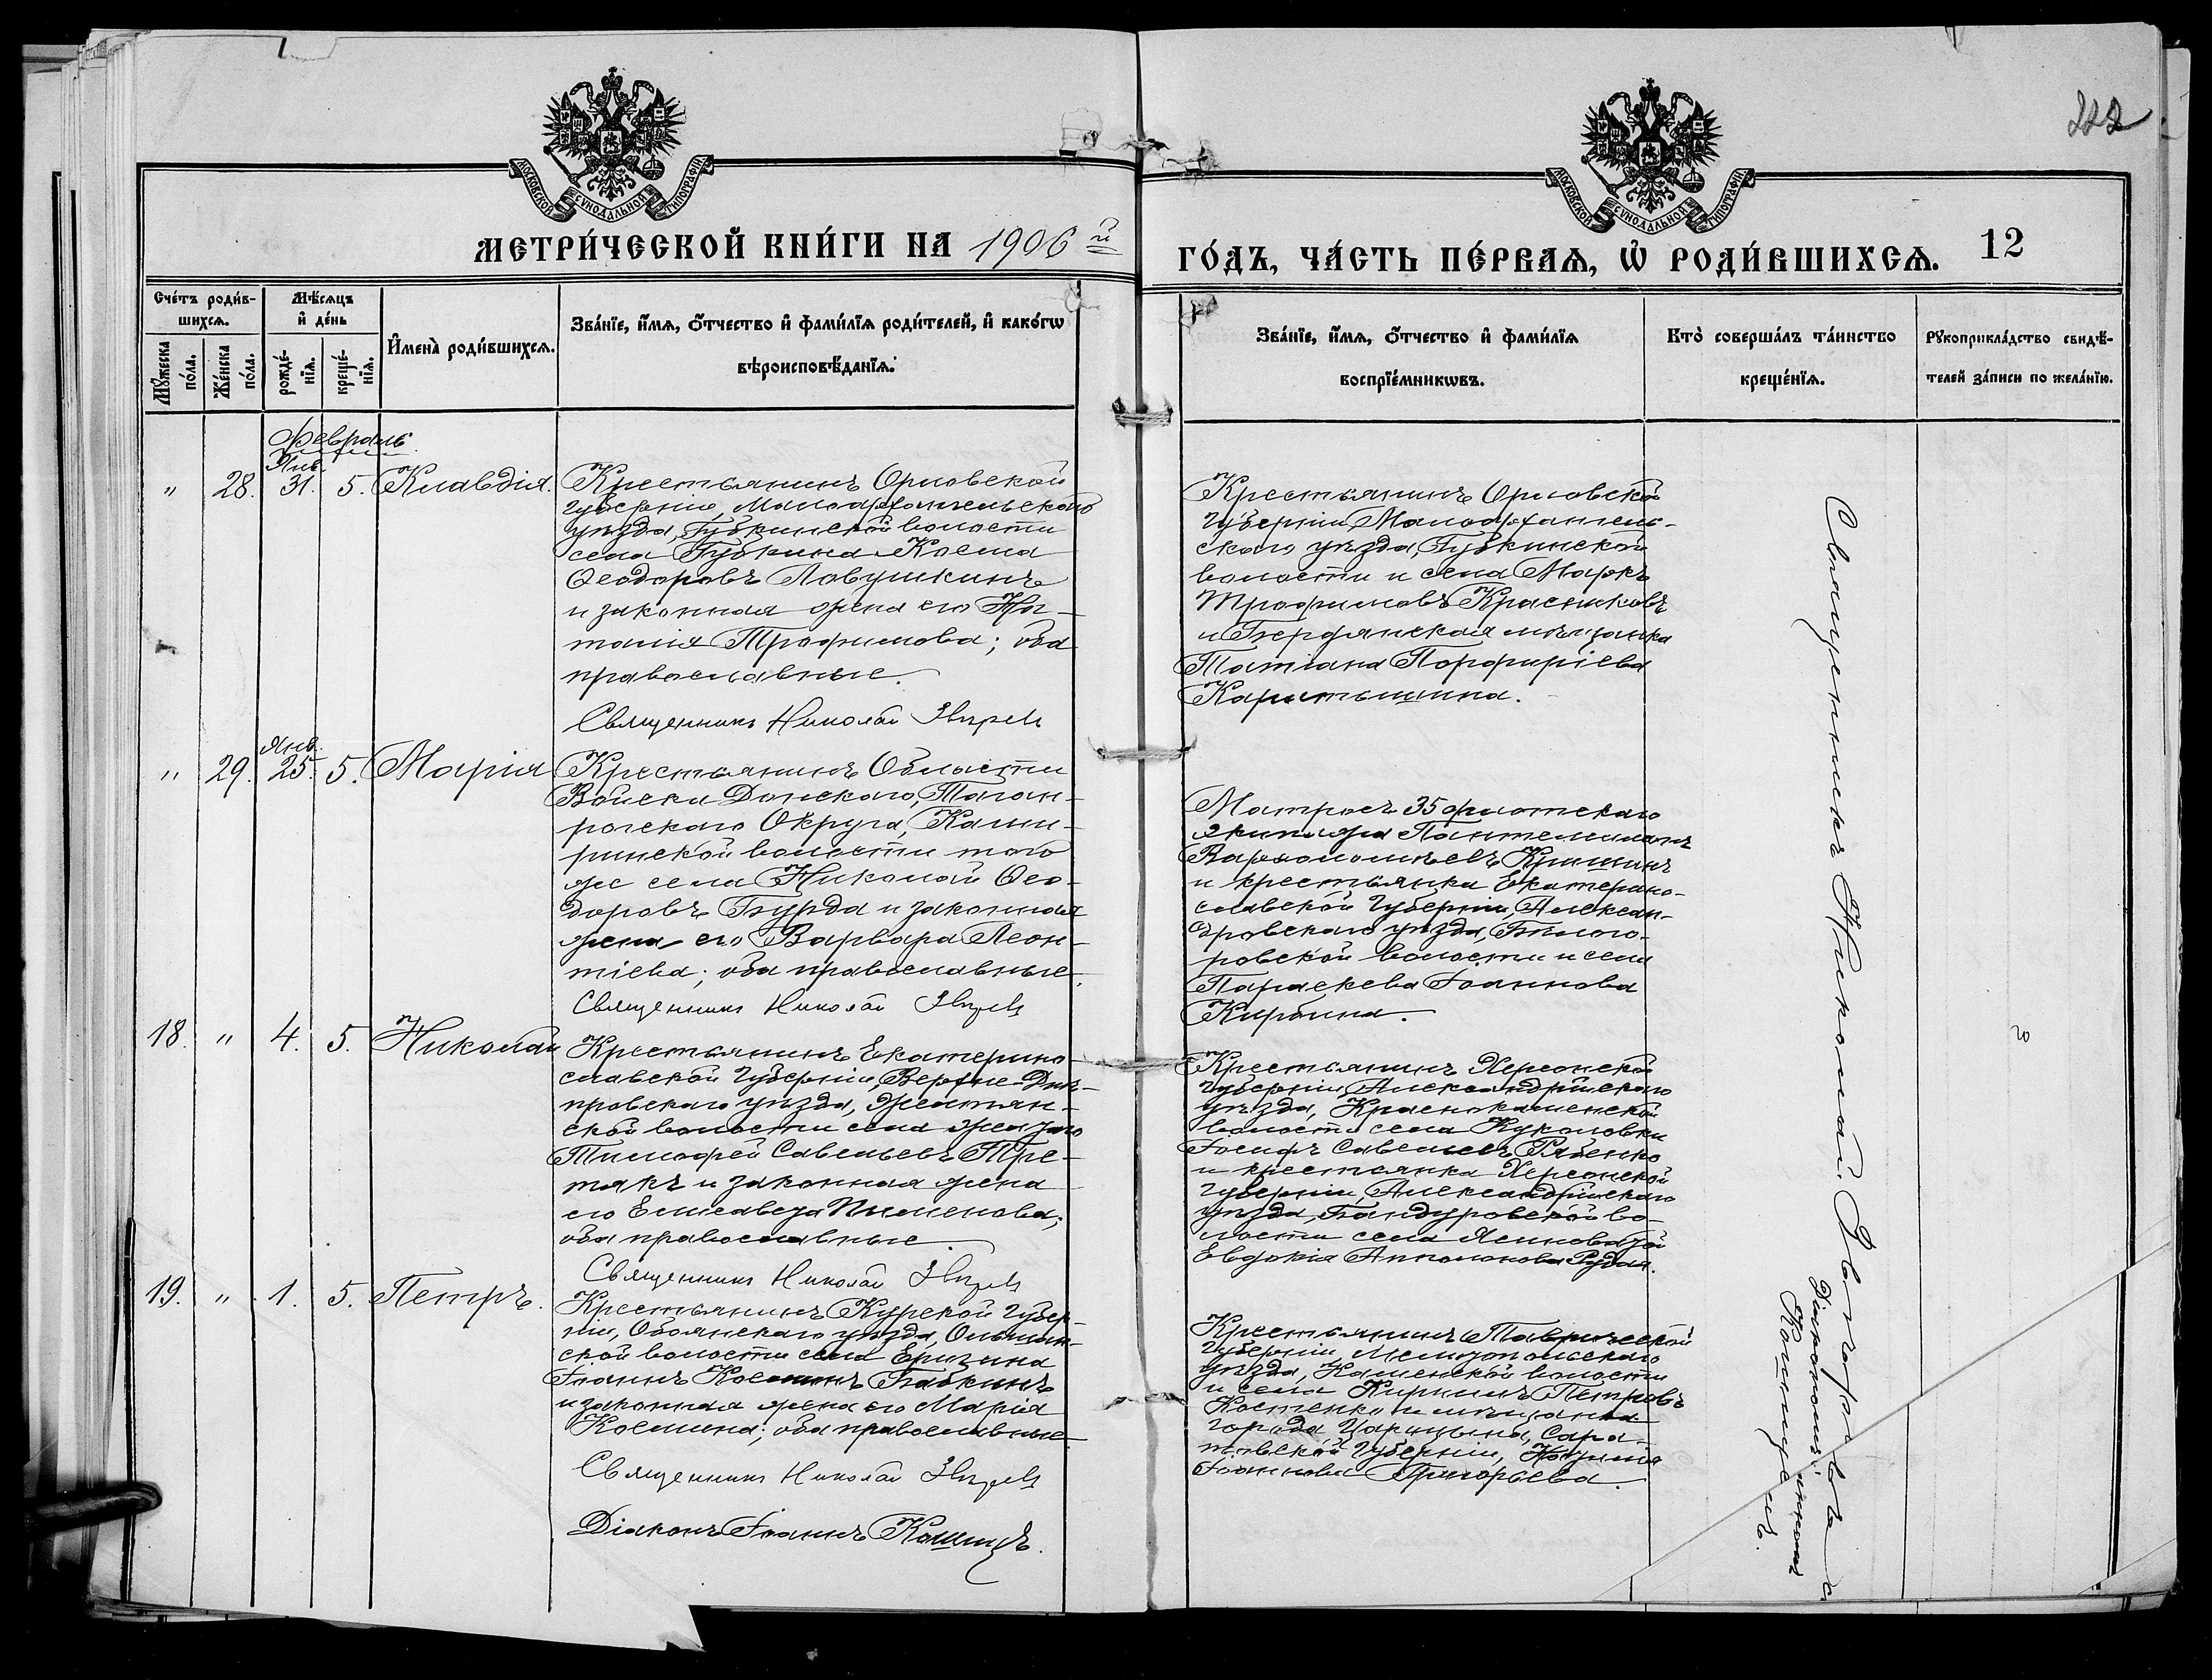 222
МОСКОВСКОЙ СѴНОДАЛЬНОЙ ТИПОГРАФІИ
МОСКОВСКОЙ СѴНОДАЛЬНОЙ ТИПОГРАФІИ
МЕТРИ́ЧЕСКОЙ КНИ́ГИ НА 1906 й
ГО́ДЪ, ЧА́СТЬ ПЕ́РВАѦ, Ѡ҆ РОДИ́ВШИХСѦ. 12
Сче́тъ роди́в-
шихсѧ.
Мꙋ́жеска по́ла.
Же́нска по́ла.
Мѣ́сѧцъ
и҆ де́нь
рожде́-
нїѧ.
креще́-
нїѧ.
И҆мена̀ роди́вшихсѧ.
Зва́нїе, и҆́мѧ, ѻ҆́тчество и҆ фами́лїѧ роди́телей, и҆ како́гѡ
вѣроисповѣ́данїѧ.
Зва́нїе, и҆́мѧ, ѻ҆́тчество и҆ фами́лїѧ
воспрїе́мникѡвъ.
Кто̀ соверша́лъ та́инство
креще́нїѧ.
Рꙋкоприкла́дство свидѣ́-
телей за́писи по жела́нїю.
Февраль
" 28. Янв. 31. 5. Клавдія.
Крестьянинъ Орловской
губерніи, Малоархангельскаго
уѣзда, Губкинской волости
села Губкина Косма
Ѳеодоровъ Ловушкинъ
и законная жена его На-
талія Трофимова; оба
православные.
Священникъ Николай
Крестьянинъ Орловской
губерніи Малоархангель-
скаго уѣзда, Губкинской
волости и села Маркъ
Трофимовъ Красниковъ
и Бердянская мѣщанка
Татіана Порфиріева
" 29. Янв. 25. 5. Марія
Крестьянинъ Области
Войска Донскаго, Таган-
рогскаго Округа,
волости того
же села Николай Ѳео-
доровъ Бурда и законная
жена его Варвара Леон-
тіева; оба православные.
Священникъ Николай
Матросъ 35 флотскаго
экипажа Пантелеимонъ
Варѳоломѣевъ
и крестьянка Екатерино-
славской Губерніи, Алексан-
дровскаго уѣзда,
волости и села
Параскева Іоаннова
18. " 4. 5. Николай
Крестьянинъ Екатерино-
славской Губерніи, Верхне-Днѣ-
провскаго уѣзда,
волости села
Тимофей Савельевъ Тре-
тякъ и законная жена
его Елисавета Пименова;
оба православные.
Священникъ Николай
Крестьянинъ Херсонской
губерніи, Александрійскаго
уѣзда, Краснокаменской
волости села Куколовки
Іосифъ Савельевъ Рябенко
и крестьянка Херсонской
Губерніи, Александрійскаго
уѣзда, Бандуровской во-
лости села
Евдокія Рудая.
19. " 1. 5. Петръ.
Крестьянинъ Курской Губер-
ніи, Обоянскаго уѣзда,
волости села
Іоаннъ Косминъ Бабкинъ
и законная жена его Марія
Космина; оба православные.
Священникъ Николай
Діаконъ Іоаннъ Кошицъ.
Крестьянинъ Таврической
Губерніи Мелитопольскаго
уѣзда, Каменской волости
и села Кириллъ Петровъ
Костенко и мѣщанка
города Царицына, Сара-
товской Губерніи,
Іоаннова Григорьева.
Священникъ Николай съ
Діакономъ Іоанномъ
Кошицемъ.